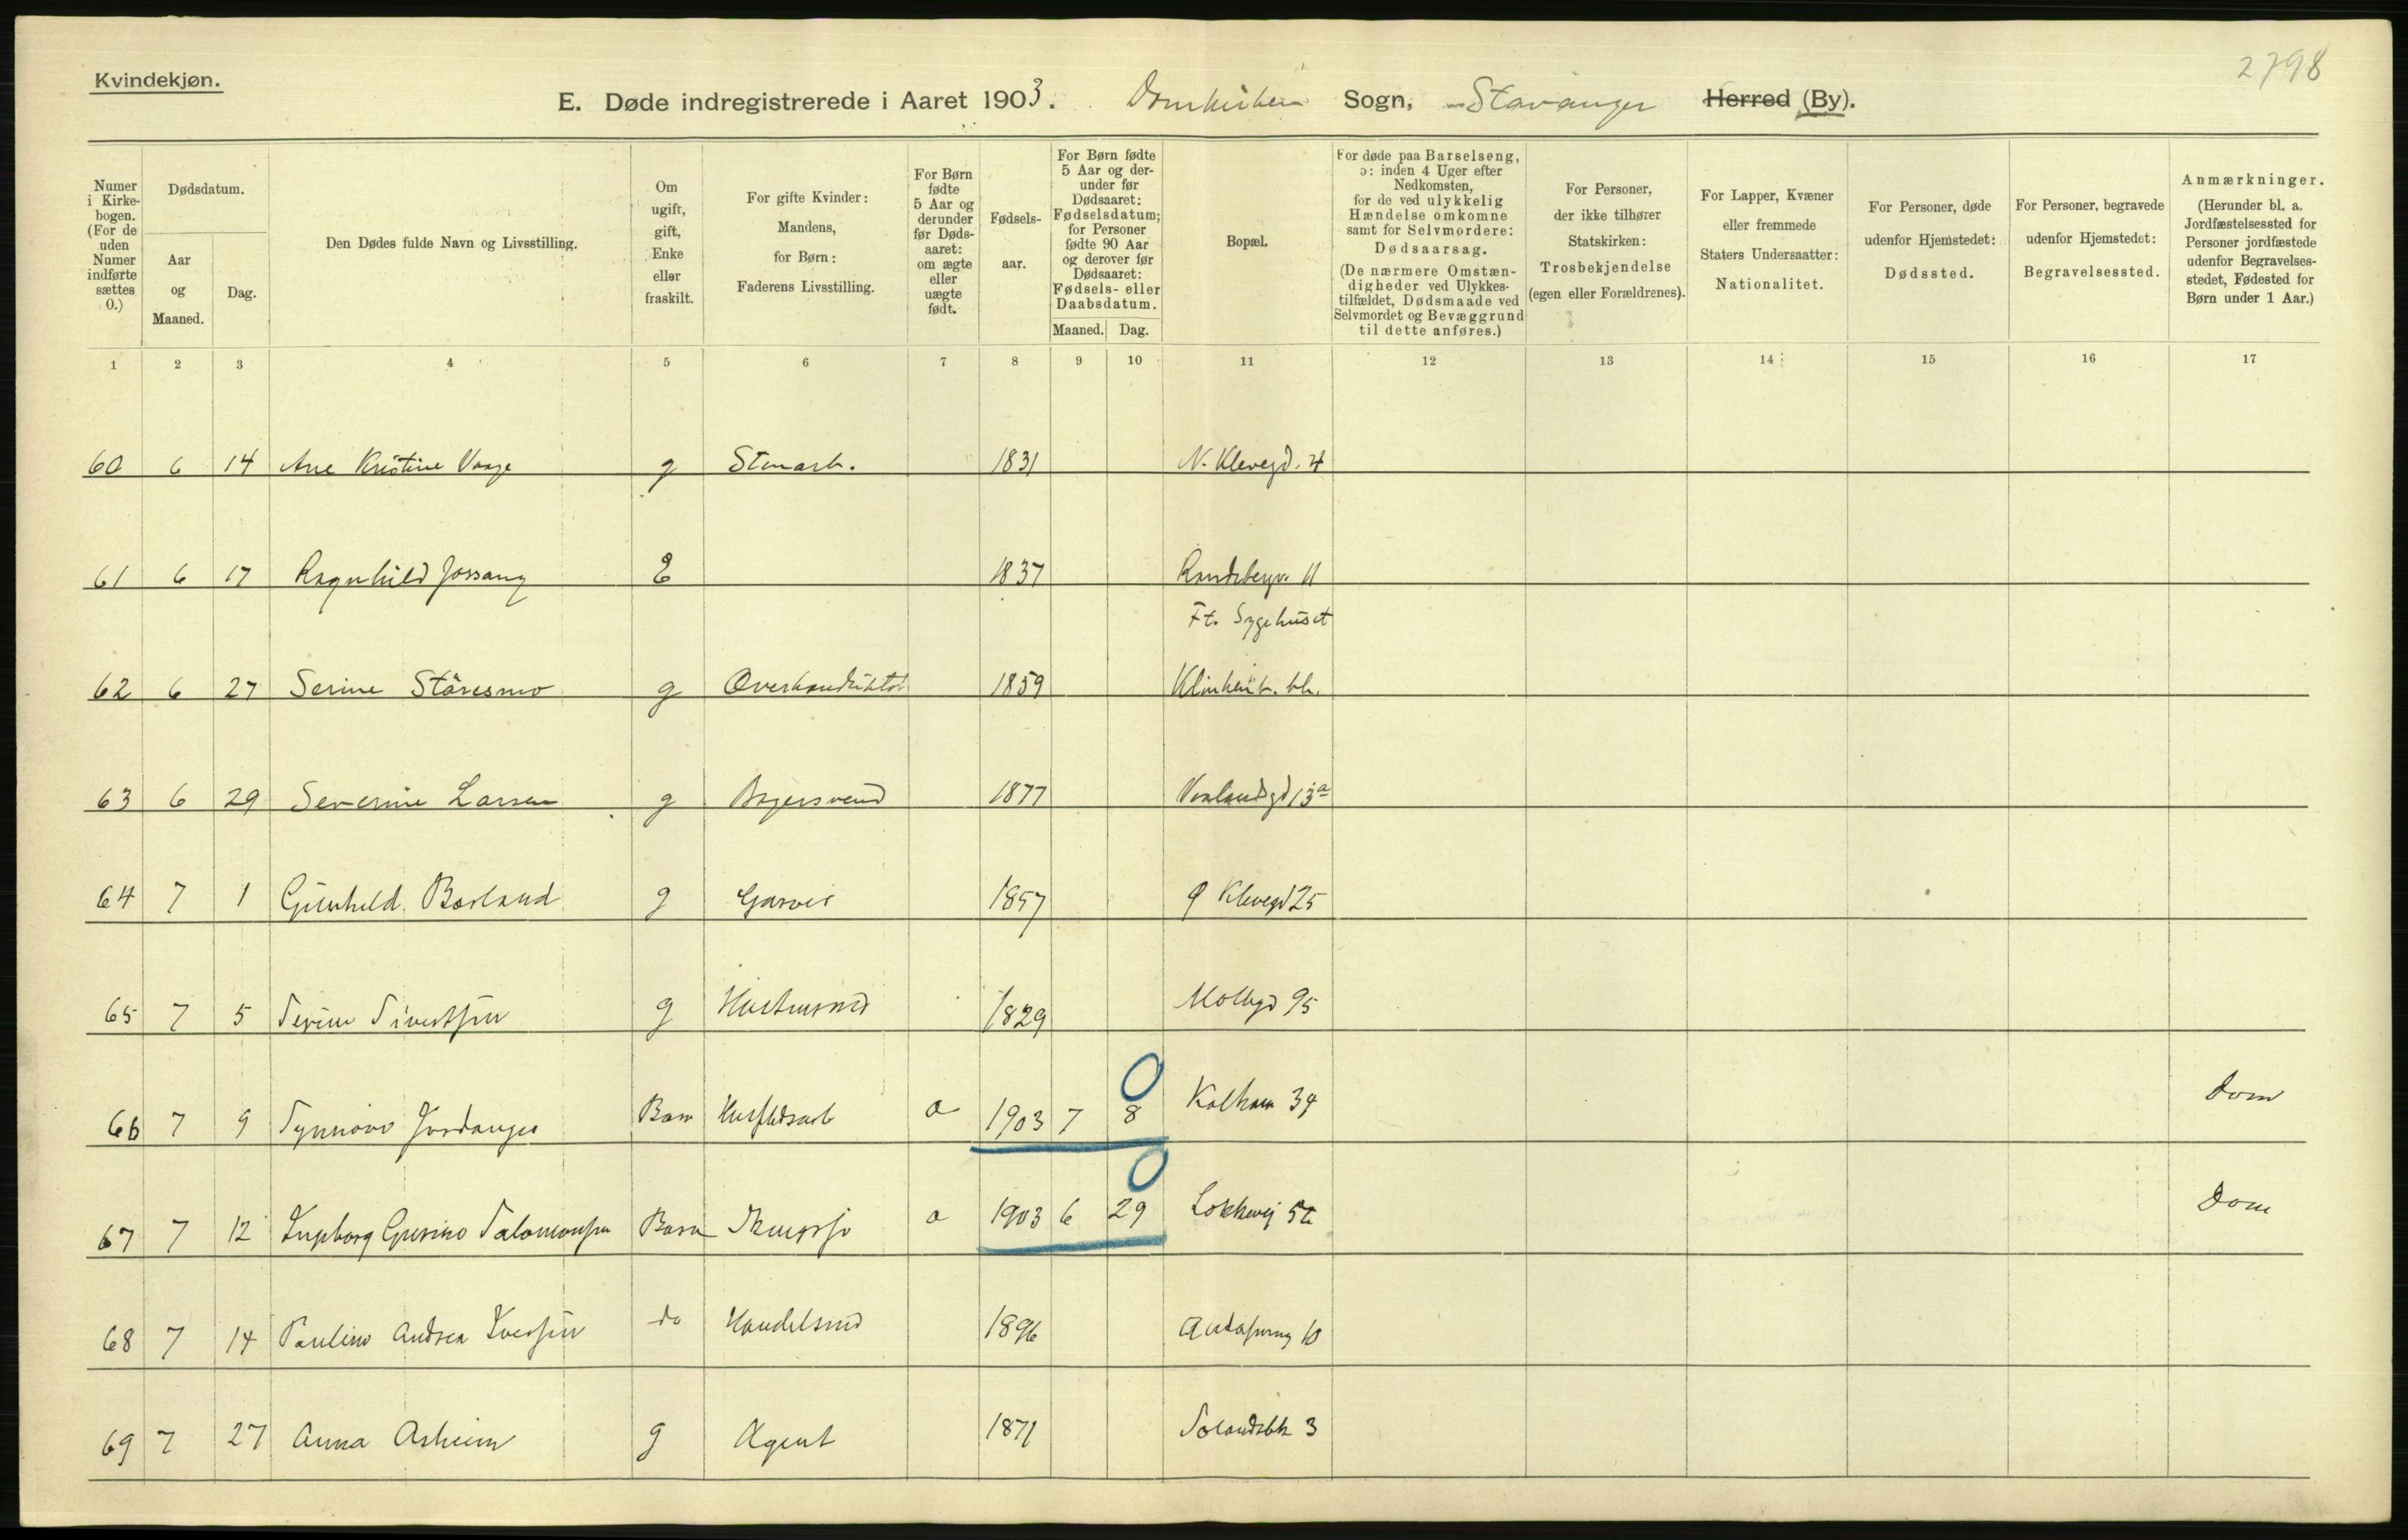 2798
Kvindekjøn.
E. Døde indregistrerede i Aaret 1903. Domkirken Sogn, Stavanger Herred (By).
Numer i Kirkebogen. (For de uden Numer indførte sættes 0.)
Dødsdatum.
Aar og Maaned.
Dag.
Den Dødes fulde Navn og Livsstilling.
Om ugift, gift, Enke eller fraskilt.
For gifte Kvinder: Mandens, for Børn: Faderens Livsstilling.
For Børn fødte 5 Aar og derunder før Dødsaaret: om ægte eller uægte født.
Fødselsaar.
For Børn fødte 5 Aar og derunder før Dødsaaret: Fødselsdatum; for Personer fødte 90 Aar og derover før Dødsaaret: Fødsels- eller Daabsdatum.
Maaned. Dag.
Bopæl.
For døde paa Barselseng, ɔ: inden 4 Uger efter Nedkomsten, for de ved ulykkelig Hændelse omkomne samt for Selvmordere: Dødsaarsag. (De nærmere Omstændigheder ved Ulykkestilfældet, Dødsmaade ved Selvmordet og Bevæggrund til dette anføres.)
For Personer, der ikke tilhører Statskirken: Trosbekjendelse (egen eller Forældrenes).
For Lapper, Kvæner eller fremmede Staters Undersaatter: Nationalitet.
For Personer, døde udenfor Hjemstedet: Dødssted.
For Personer, begravede udenfor Hjemstedet: Begravelsessted.
Anmærkninger. (Herunder bl. a. Jordfæstelsessted for Personer jordfæstede udenfor Begravelsesstedet, Fødested for Børn under 1 Aar.)
1 2 3 4 5 6 7 8 9 10 11 12 13 14 15 16 17
60 6 14 Ane Kristine Vaage g Stenarb. 1831 N. Klevegd. 4
61 6 17 Ragnhild Jossang E 1837 Randebergv. 11
Ft. Sygehuset
62 6 27 Serine Støresmo g Overkonduktør 1859
63 6 29 Severine Larsen g Bagersvend 1877 Vaalandsgd 13a
64 7 1 Gunhild Børland g Garver 1857 Ø Klevegd 25
65 7 5 Serine Sivertsen g Husmand 1829 95
66 7 9 Synnøve Barn a 1903 7 8 0 Kalham 34 Dom
67 7 12 Ingborg Salomonsen Barn a 1903 6 29 0 Lokkevej Dom
68 7 14 Pauline Andrea Iversen do Handelsmd 1896 10
69 7 27 Anna Asheim g Agent 1871 Solandsbk 3